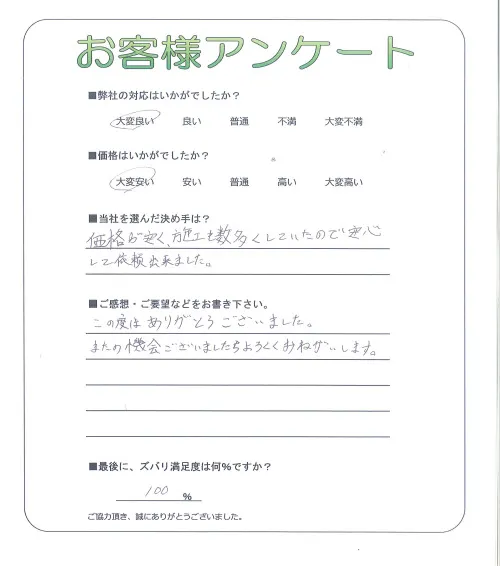 お客様アンケート
■弊社の対応はいかがでしたか？
大変良い 良い 普通 不満 大変不満
■価格はいかがでしたか？
大変安い 安い 普通 高い 大変高い
■当社を選んだ決め手は？
価格が安く、施工も数多くしていたので安心
して依頼出来ました。
■ご感想・ご要望などをお書き下さい。
この度はありがとうございました。
またの機会ございましたらよろしくおねがいします。
■最後に、ズバリ満足度は何％ですか？
100 %
ご協力頂き、誠にありがとうございました。